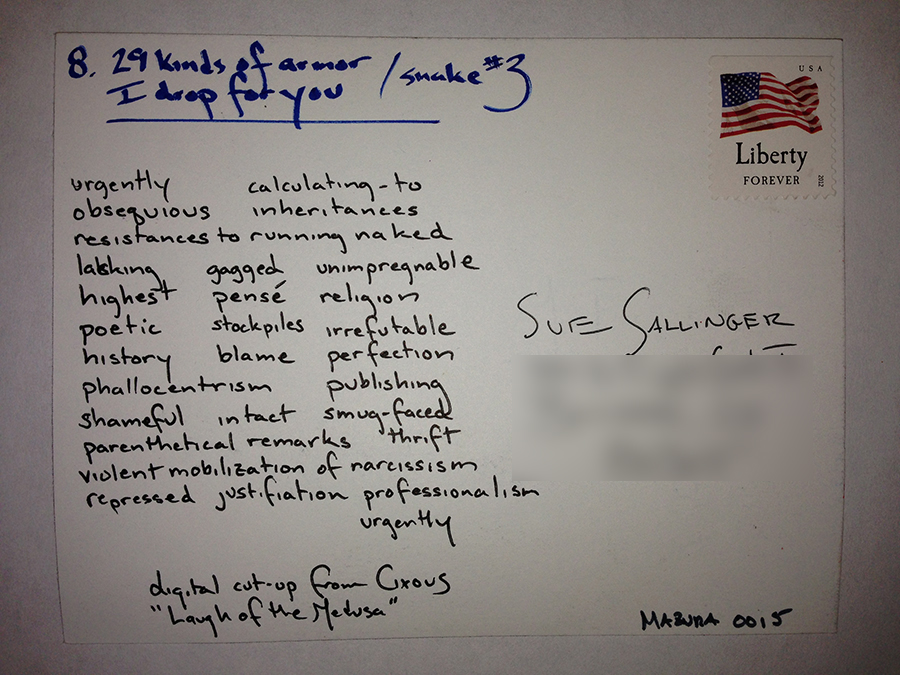 8. 29 kinds of armor
I drop for you / snake #3
USA
Liberty
FOREVER 2012
urgently calculating-to
obsequious inheritances
resistances to running naked
lacking gagged unimpregnable
highest pensé religion
poetic stockpiles irrefutable
history blame perfection
phallocentrism publishing
shameful intact smug-faced
parenthetical remarks thrift
violent mobilization of narcissism
repressed justifiation professionalism
urgently
SUE SALLINGER
digital cut-up from Cixous
"Laugh of the Medusa"
MAZURA 0015